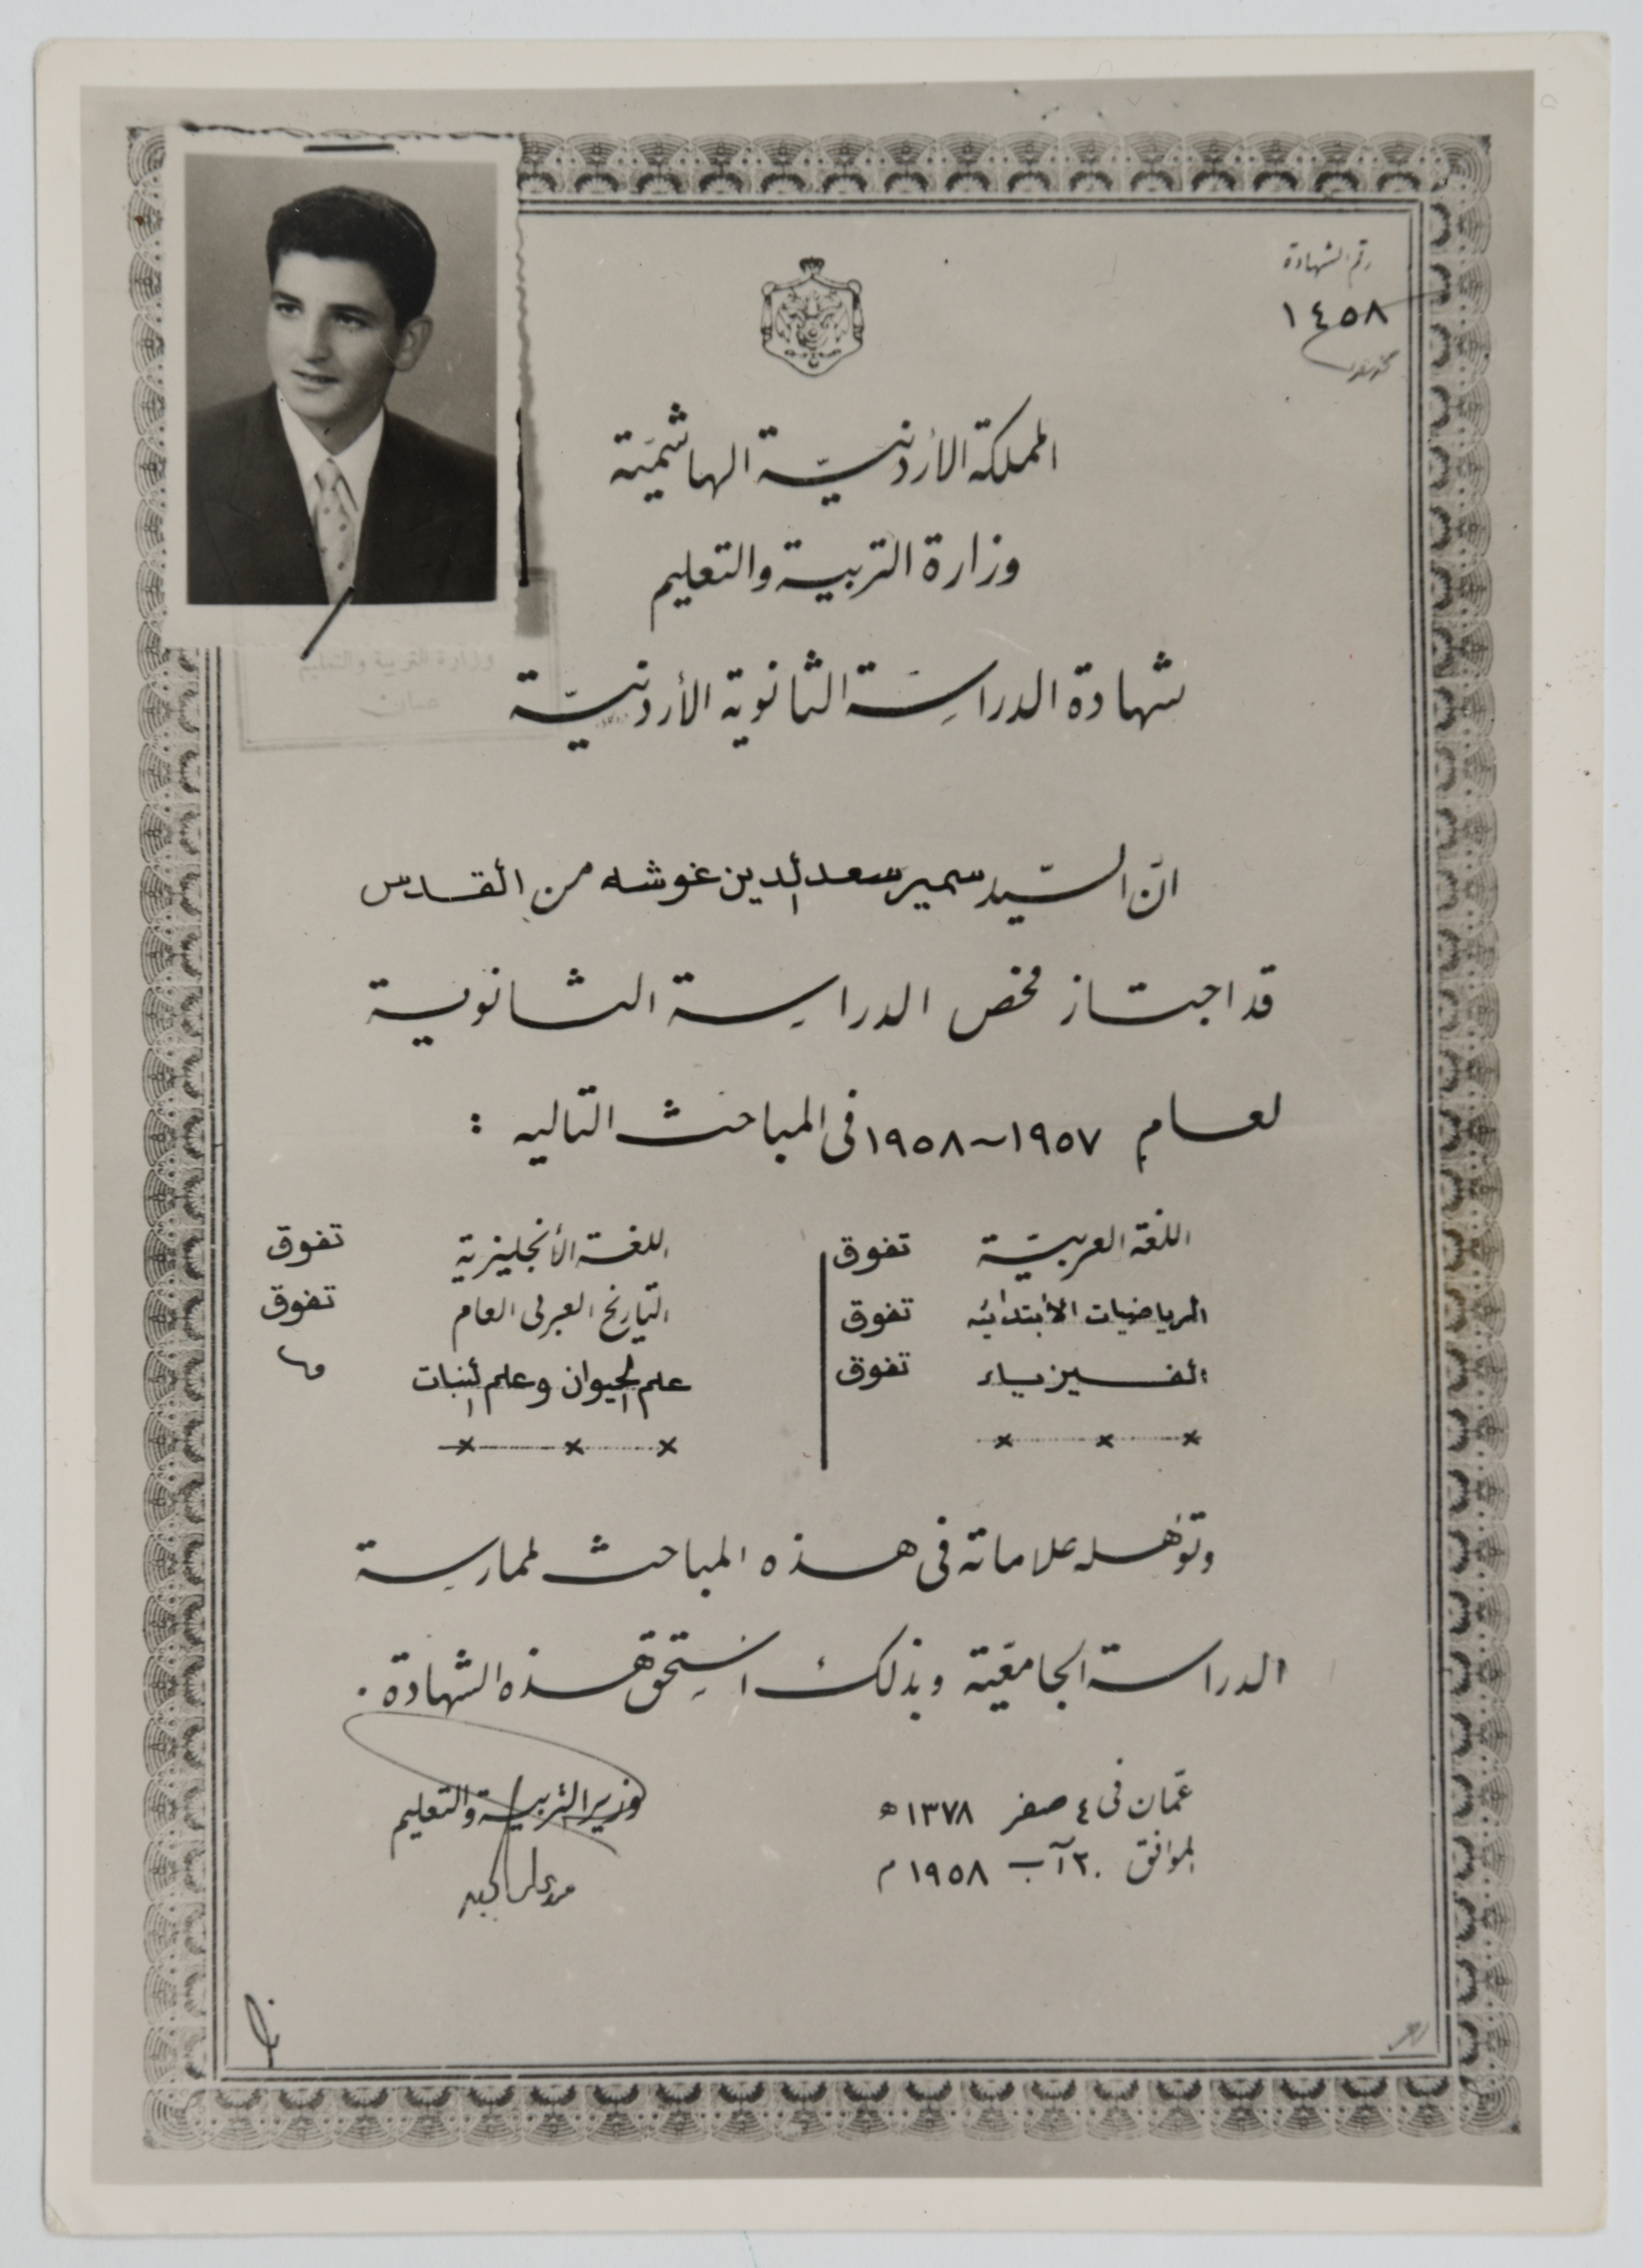 رقم الشهادة
١٤٥٨
المملكة الأردنيّة الهاشميّة
وزارة التربية والتعليم
شهادة الدراسة الثانوية الأردنيّة
وزارة التربية والتعليم
عمان
انّ السّيد سمير سعد الدين غوشه من القدس
قد اجتاز فحص الدراسة الثانوية
لعام ١٩٥٧~١٩٥٨ في المباحث التاليه :
اللغة العربيّة تفوق اللغة الأنجليزية تفوق
الرياضيات الأبتدائيه تفوق التاريخ العربي العام تفوق
الفيزياء تفوق علم الحيوان وعلم النبات
وتؤهله علاماته في هذه المباحث لممارسة
الدراسة الجامعيّة وبذلك استحق هذه الشهادة .
عمّان في ٤ صفر ١٣٧٨ ه وزير التربية والتعليم
الموافق ٢٠ آب ١٩٥٨ م